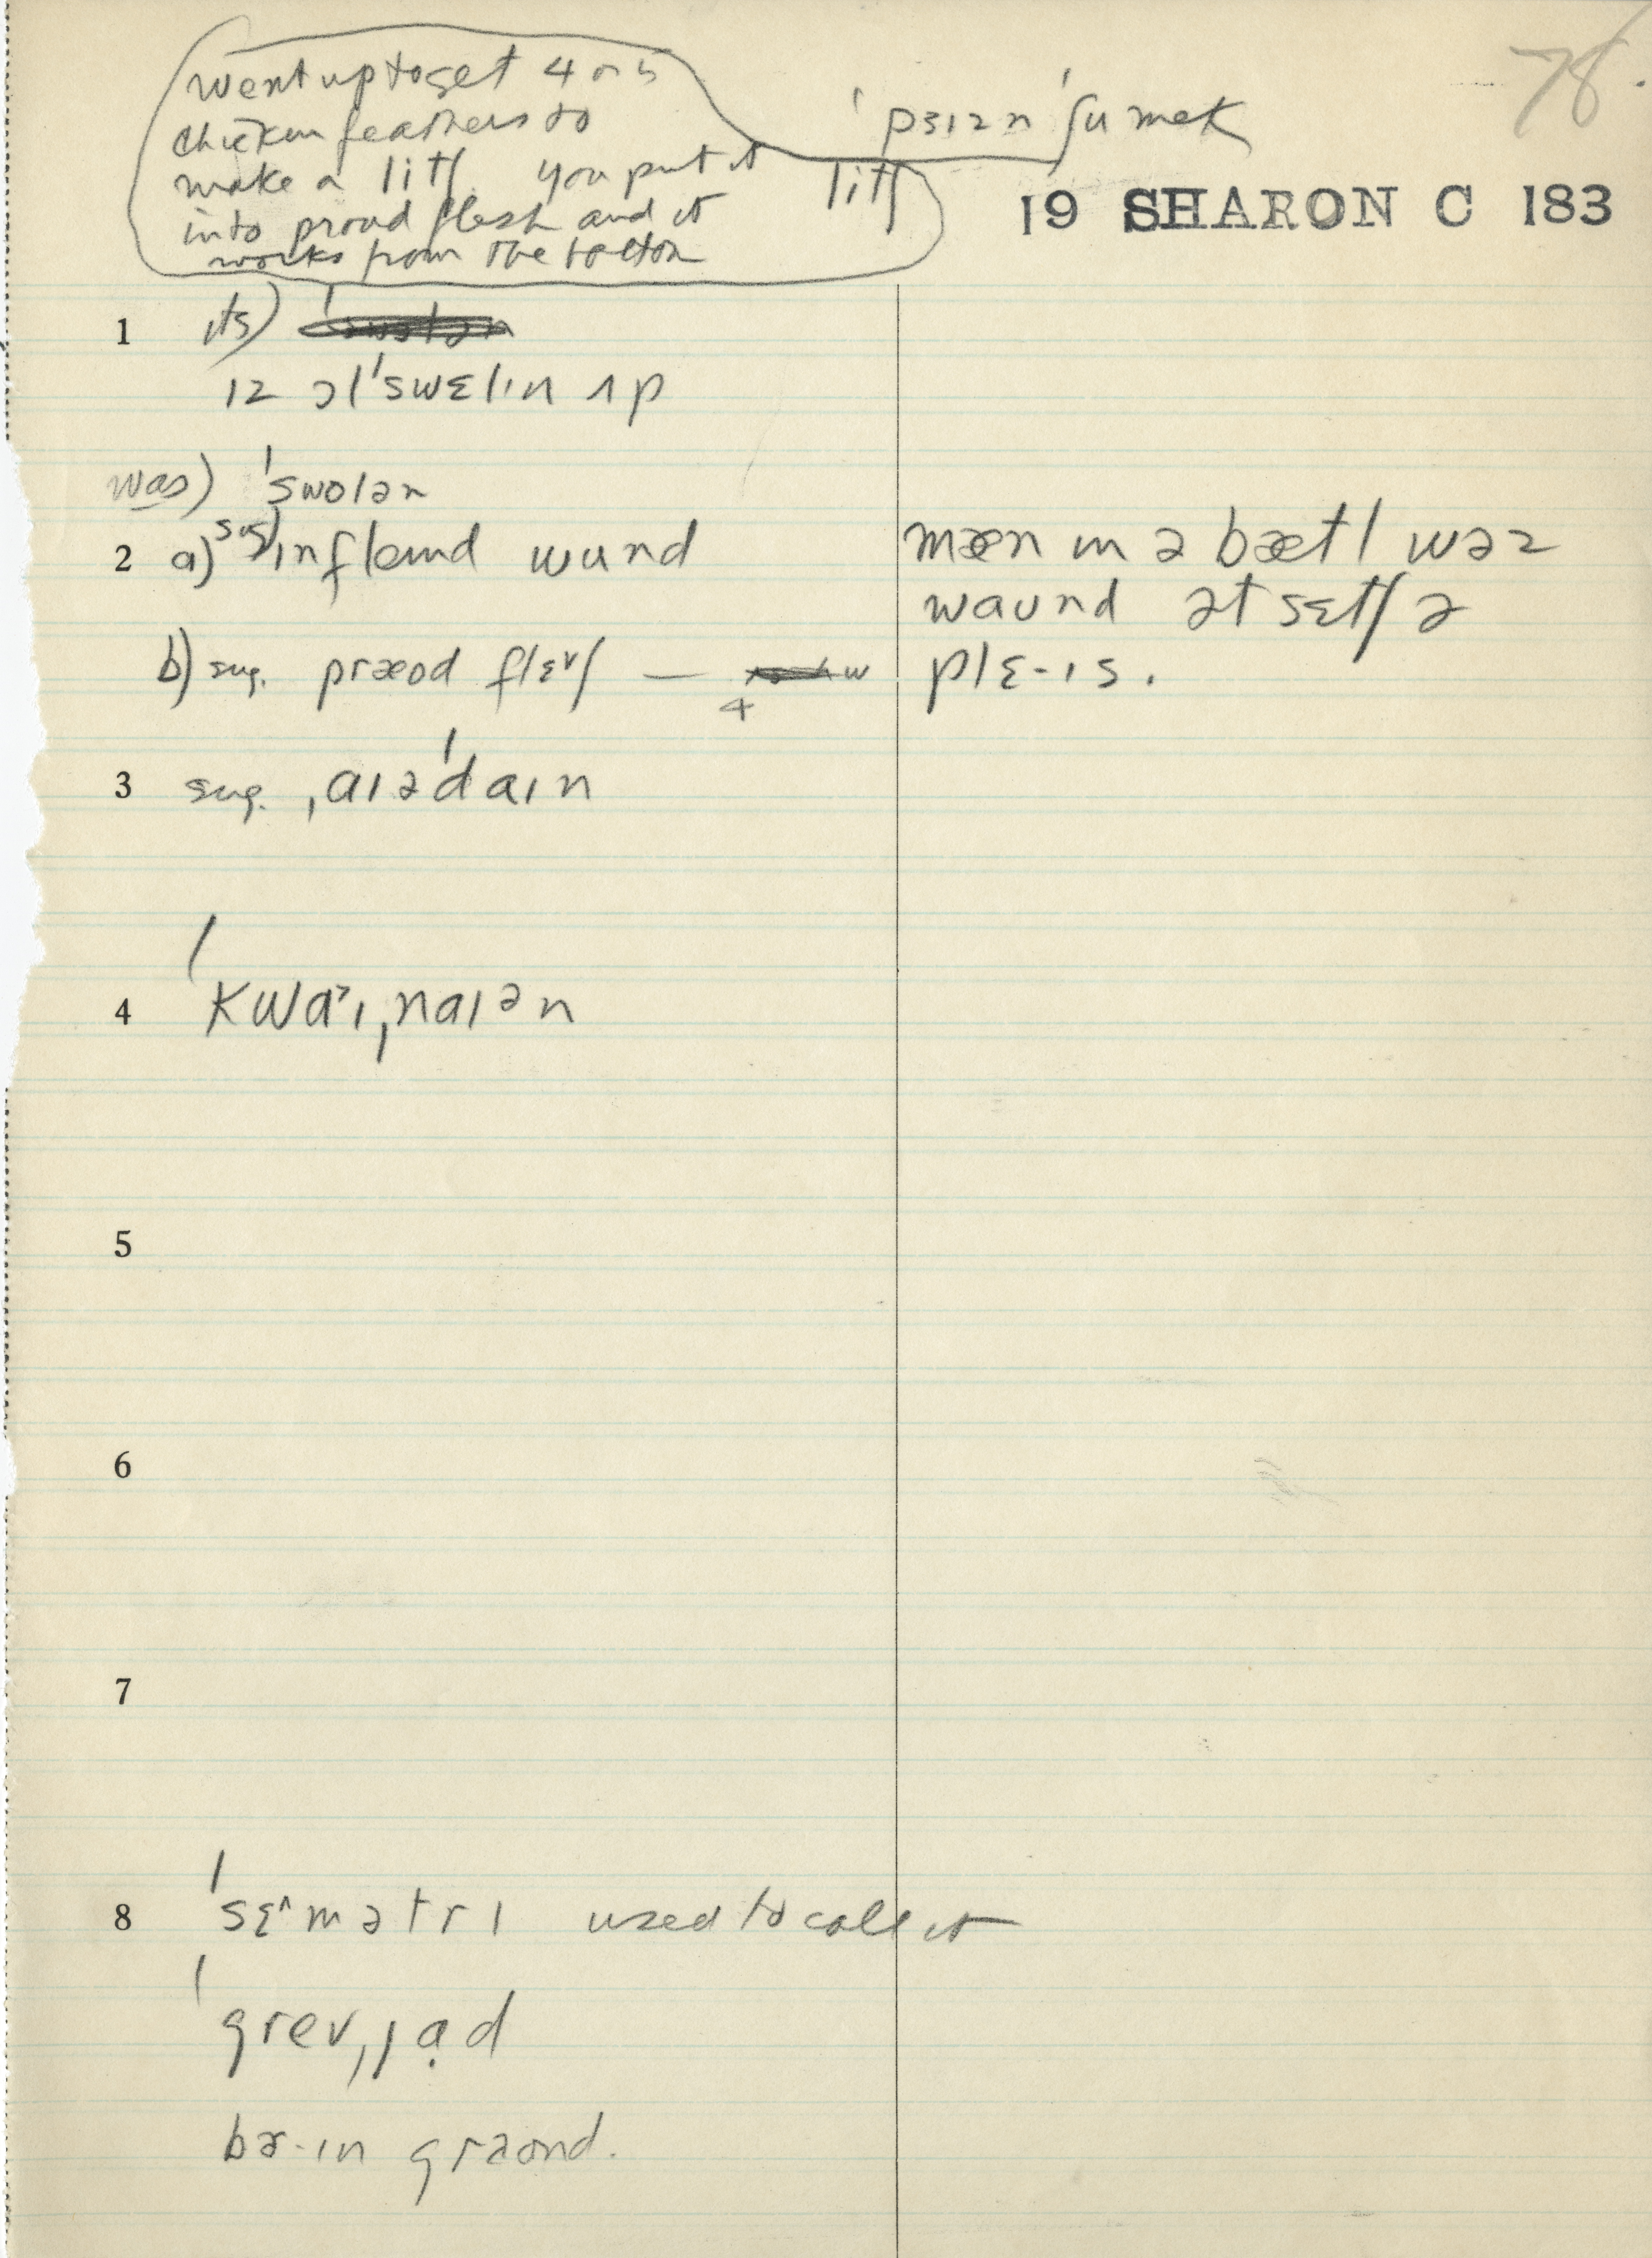 78.
went up to get 4 or 5
chicken feathers to
make a litʃ you put it
into proud flesh and it
works from the bottom
ˈpɜɪzn ˈʃumek
litʃ
19 SHARON C 183
1 its)
ɪz ɔl ˈswɛlɪn ʌp
was) ˈswolən
2 a) sug) ɪnflemd wund
b) sug. præod flɛ˅ʃ —
mæn ɪn ə bætl wəz
waund ət sɛtʃ ə
plɛ-ɪs.
3 sug. ˌaɪəˈdaɪn
4 ˈkwa˃ɪˌnaɪən
5
6
7
8 ˈsɛ^mətrɪ used to call it
ˈgrevˌjạd
bɚ-ɪn graond.